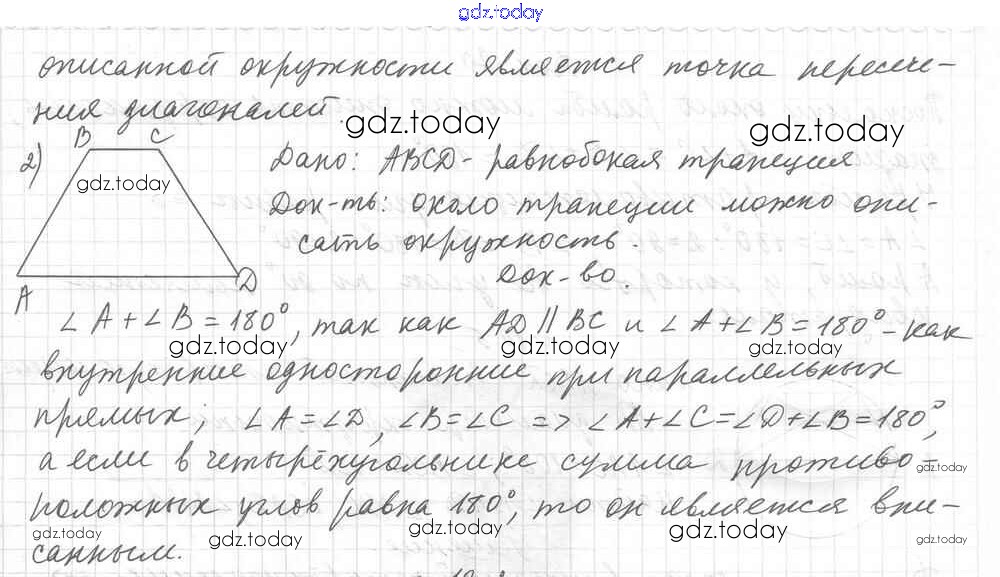 gdz.today
описанной окружности является точка пересече-
ния диагоналей.
gdz.today
gdz.today
2)
B C
gdz.today
A D
Дано: ABCD - равнобокая трапеция
Док-ть: около трапеции можно опи-
сать окружность.
Док-во.
∠A+∠B=180°, так как AD || BC и ∠A+∠B=180° - как
gdz.today gdz.today gdz.today
внутренние односторонние при параллельных
прямых; ∠A=∠D, ∠B=∠C => ∠A+∠C=∠D+∠B=180°,
а если в четырёхугольнике сумма противо-
gdz.today
положных углов равна 180°, то он является впи-
gdz.today gdz.today gdz.today gdz.today gdz.today
санным.